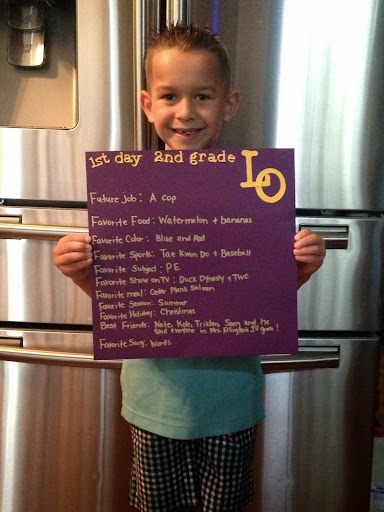 1st day 2nd grade LO
Future job: A cop
Favorite Food: Watermelon + bananas
Favorite Color: Blue and Red
Favorite Sports: Tae Kwon Do + Baseball
Favorite Subject: PE
Favorite Show on TV: Duck Dynasty + TWC
Favorite meal: Cedar Plank Salmon
Favorite Season: Summer
Favorite Holiday: Christmas
Best Friends: Nate, Kyle, Tristan, Sam and he
Said everyone in Mrs. 1st grade!
Favorite Song: Words